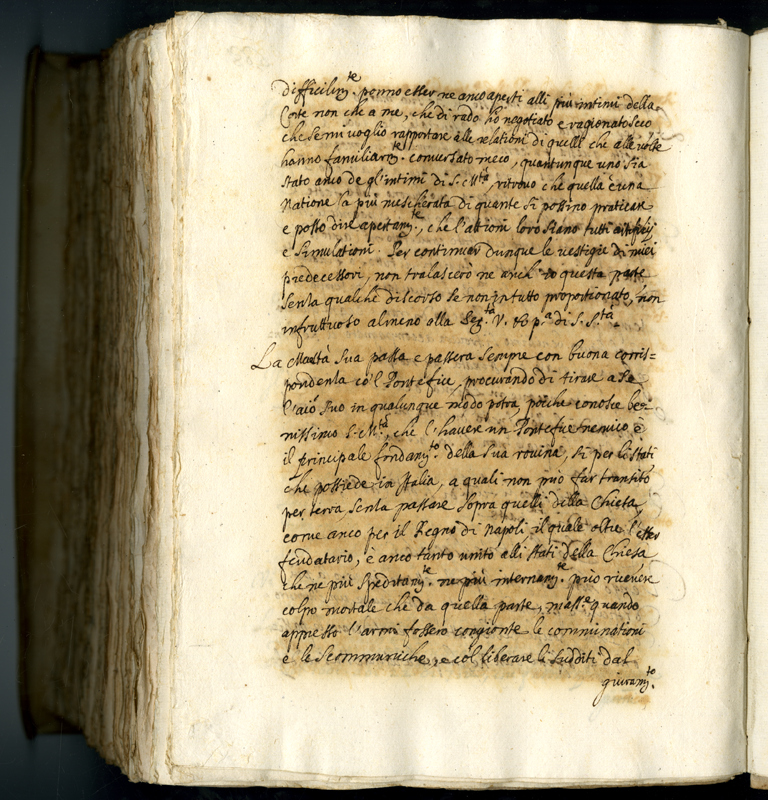 difficilm.te ponno esser ne anco aperti alli più intimi della
Corte non che a me, che di rado hò negotiato e ragionato seco
che se mi voglio rapportare alle relationi di quelli che alle volte
hanno familiarm.te conversato meco, quantunque uno sia
stato anco de gl'intimi di S. M.tà, ritrovo che quella è una
Natione la più mescherata di quante si possino praticare
e posso dire apertam.te, che l'attioni loro siano tutti artificij
e simulationi. Per continuar dunque le vestigie di miei
predecessori, non tralascerò ne anch'io questa parte
senza qualche discorso se non in tutto proportionato, non
infruttuoso almeno alla Seg.ta V. & p.a di S. S.tà
La Maestà Sua passa e passerà sempre con buona corris=
pondenza co'l Pontefice, procurando di tirare a se
l'aīo suo in qualunque modo potrà, poiche conosce be=
nissimo S. M.tà, che l'havere un Pontefice nemico è
il principale fondam.to della sua rovina, si per li stati
che possiede in Italia, a quali non può far transito
per terra, senza passare sopra quelli della Chiesa,
come anco per il Regno di Napoli, il quale oltre l'esser
feudatario, è anco tanto unito alli stati della Chiesa
che ne più speditam.te ne più internam.te può ricevere
colpo mortale che da quella parte, mass.e quando
appresso l'armi fossero congionte le comminationi
e le scommuniche, e col liberare li sudditi dal
giuram.to